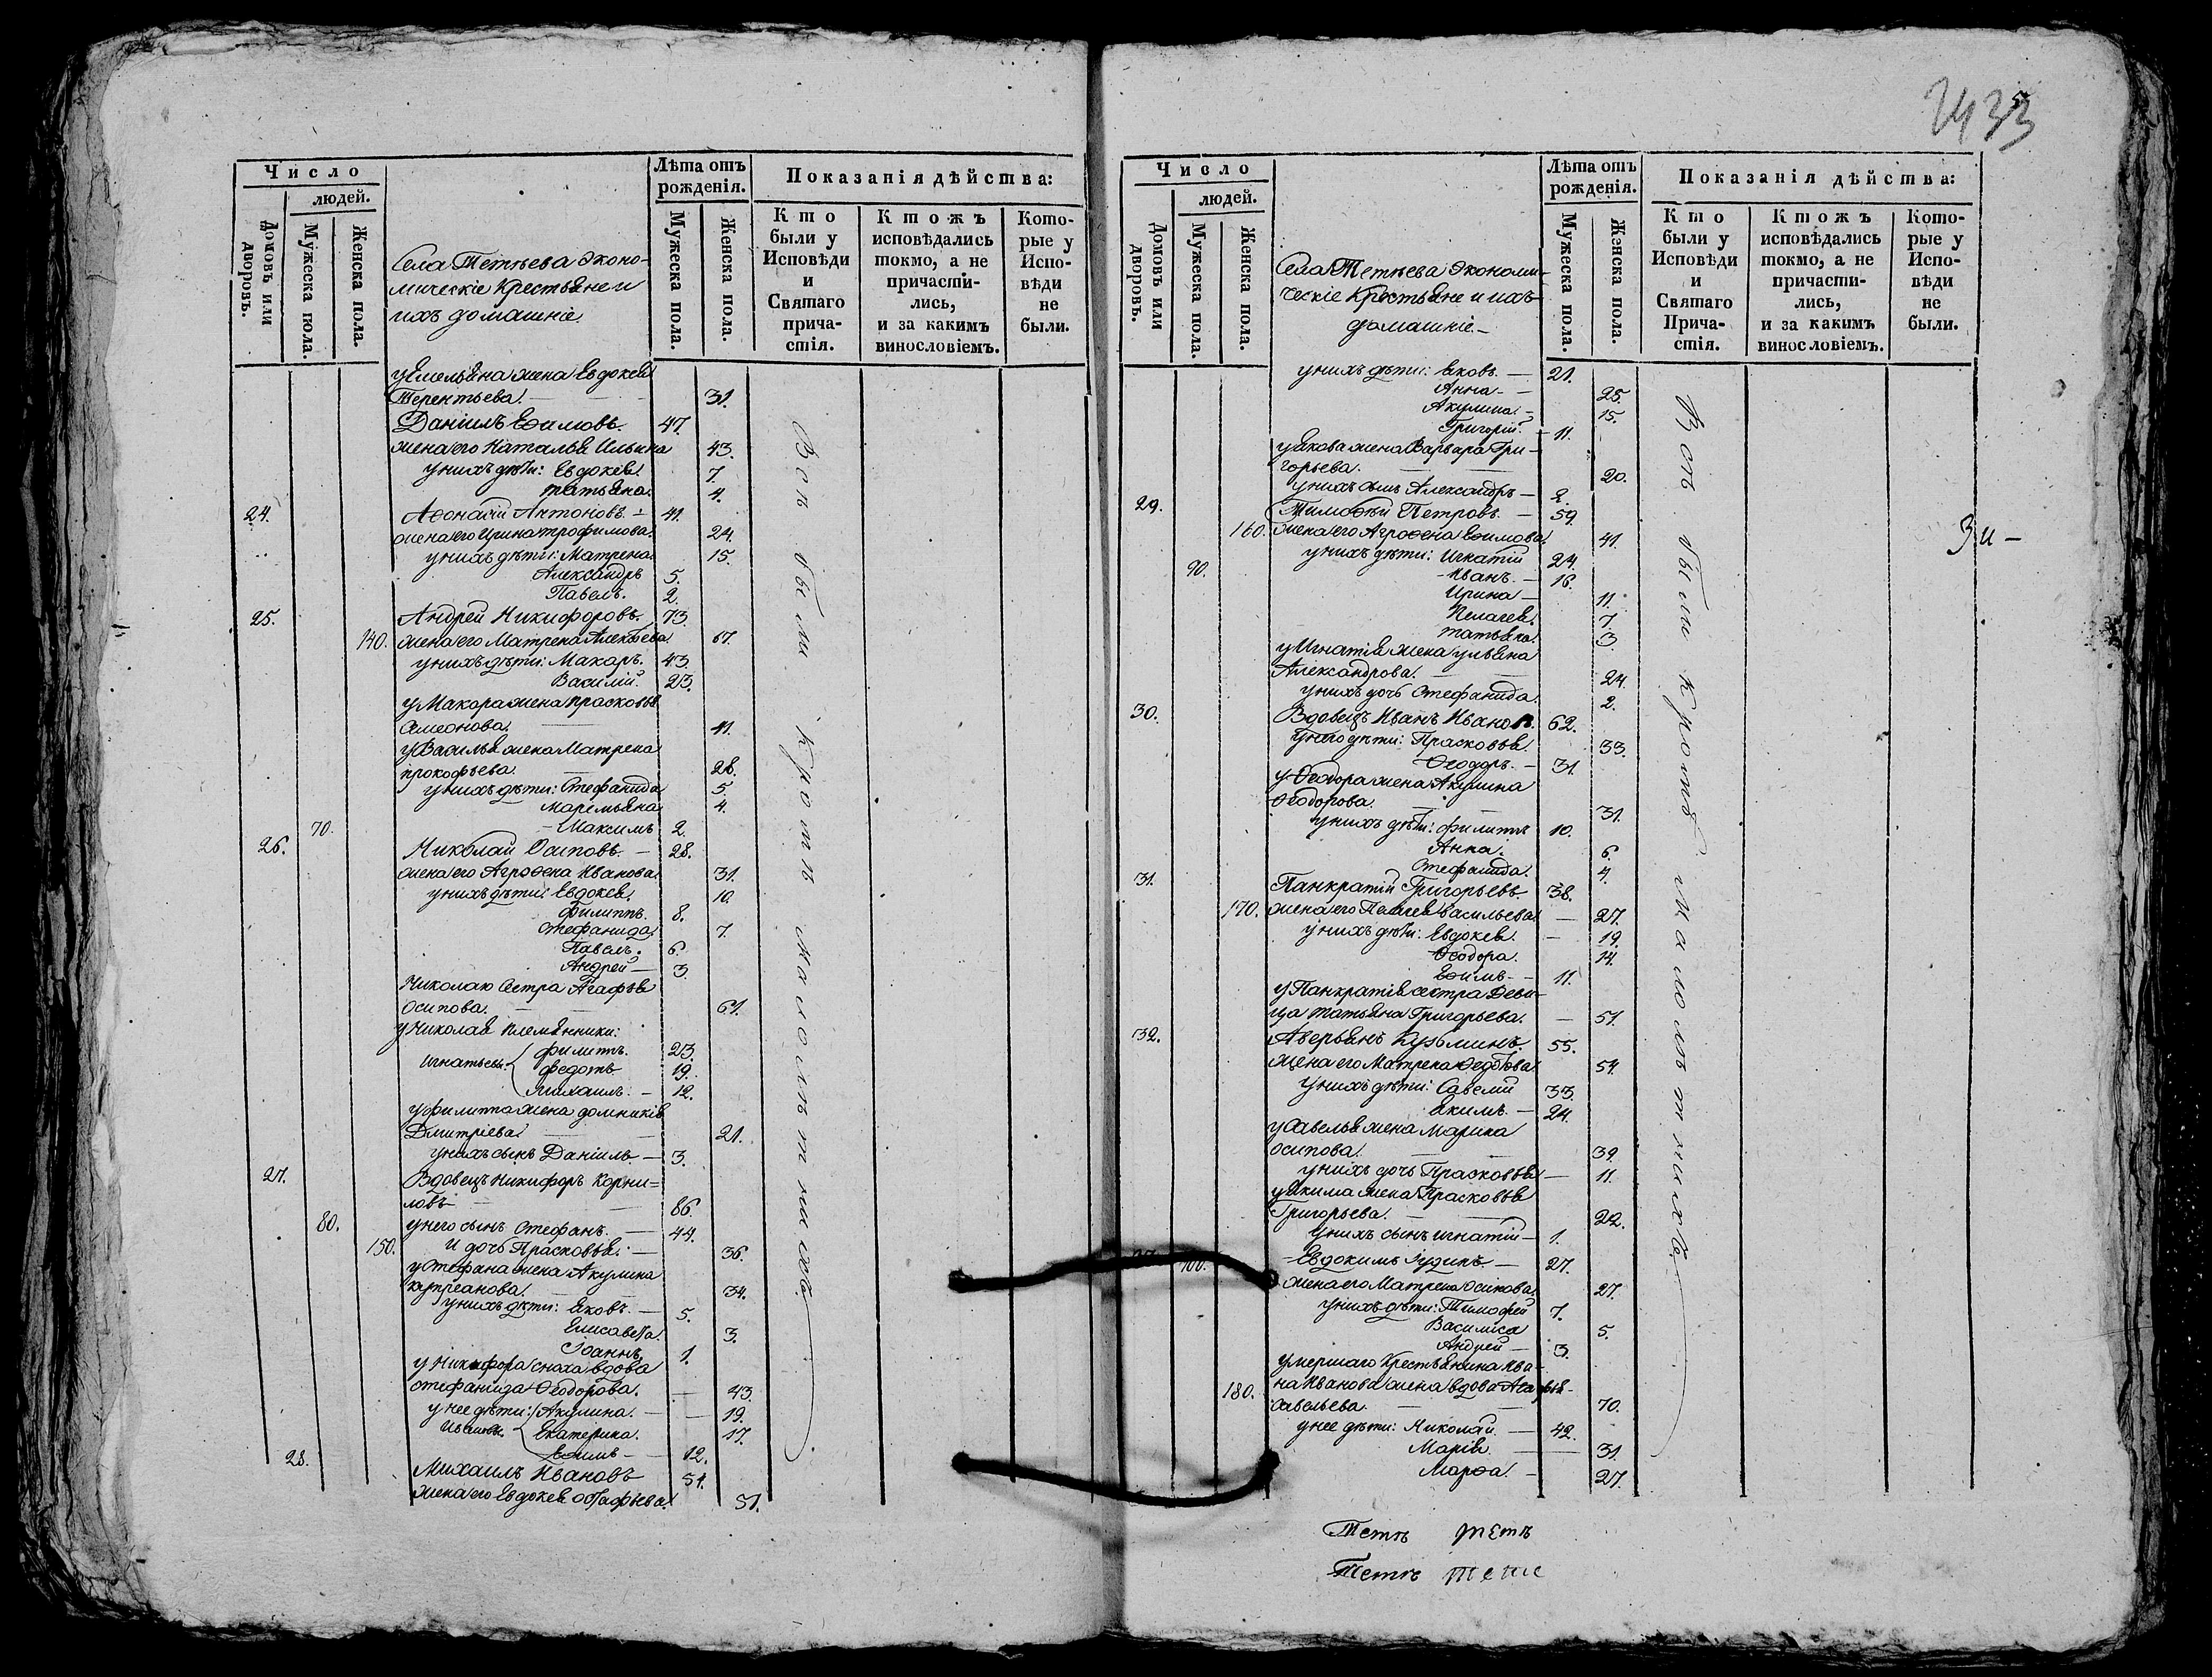 2433
Число
людей.
Домовъ или дворовъ.
Мужеска пола.
Женска пола.
Лѣта отъ рожденія.
Мужеска пола.
Женска пола.
Показанія дѣйства:
Кто были у Исповѣди и Святаго причастія.
Ктожъ исповѣдались токмо, а не причастились, и за какимъ винословіемъ.
Которые у Исповѣди не были.
Села Тетѣева Эконо-
мическіе Крестьяне и
ихъ домашніе.
у Емельяна жена Евдокея
Терентьева. 31.
Даніилъ Еѳимовъ. 47.
жена его Наталья Ильина 43.
у нихъ дѣти: Евдокея. 7.
татьяна. 4.
24. Аѳонасій Антоновъ. — 41.
жена его Ирина трофимова. 24.
у нихъ дѣти: Матрена. 15.
Александръ 5.
Павелъ. 2.
25. Андрей Никифоровъ. 73.
140. жена его Матрена Алексѣева 67.
у нихъ дѣти: Макаръ. 43.
Василій. 23.
у Макара жена прасковья
Симеонова. 41.
у Василья жена Матрена
прокофьева. 28.
у нихъ дѣти: Стефанида 5.
маремьяна 4.
70. — Максимъ 2.
26. Николай Осиповъ. — 28.
жена его Агрофена Иванова. 31.
у нихъ дѣти: Евдокея. 10.
филиппъ. 8.
стефанида. 7.
Павелъ. 6.
Андрей — 3.
Николаю Сестра Агафья
Осипова. 61.
у Николая племянники:
Игнатьевы филиппъ. 23.
федотъ 19.
михаилъ. — 12.
у филиппа жена домникія
Дмитріева. 21.
у нихъ сынъ Даніилъ — 3.
27. Вдовецъ Никифоръ Корни=
ловъ 86
80. у него сынъ Стефанъ. — 44.
150. И дочь Прасковья. — 36.
у стефана жена Акулина
купреанова. 34.
у нихъ дѣти: Яковъ. — 5.
Елисавета. 3.
Іоаннъ 1.
у Никифора сноха вдова
стефанида Ѳеодорова. — 43.
у нее дѣти: Акулина. — 19.
Ивановы Екатерина. 17.
Еѳимъ — 12.
28. Михаилъ Ивановъ 54.
жена его Евдокея Остафьева. 51.
Вси были кромѣ малолѣтнихъ
Число
людей.
Домовъ или дворовъ.
Мужеска пола.
Женска пола.
Лѣта отъ рожденія.
Мужеска пола.
Женска пола.
Показанія дѣйства:
Кто были у Исповѣди и Святаго Причастія.
Ктожъ исповѣдались токмо, а не причастились, и за какимъ винословіемъ.
Которые у Исповѣди не были.
Села Тетѣева Экономи-
ческіе Крестьяне и ихъ
домашніе. —
у нихъ дѣти: Яковъ. — 21.
Анна — 25.
Акулина. — 15.
Григорій. — 11.
у Якова жена Варвара Гри-
горьева. 20.
у нихъ сынъ Александръ — 2.
29. Тимоѳей Петровъ. — 59.
160. жена его Агрофена Еѳимова. 41.
у нихъ дѣти: Игнатій 24.
90. — Иванъ. — 16.
Ирина — 11.
Пелагея. 7.
татьяна. 3.
у Игнатія жена ульяна
Александрова. 24.
у нихъ дочь Стефанида. 2.
30. Вдовецъ Иванъ Ивановъ. 62.
у него дѣти: Прасковья. 33.
Ѳеодоръ. — 31.
у Ѳеодора жена Акулина
Ѳеодорова. 31.
у нихъ дѣти: филиппъ 10.
Анна. 6.
Стефанида. 4.
31. Панкратій Григорьевъ. 38.
170. жена его Пелагея Васильева. — 27.
у нихъ дѣти: Евдокея. — 19.
Ѳеодора. 14.
Еѳимъ. — 11.
у Панкратія сестра Деви-
ца татьяна Григорьева. — 51.
32. Аверьянъ Кузьминъ. 55.
жена его Матрена Ѳедотова. 54.
у нихъ дѣти: Савелій 33.
Якимъ. — 24.
у Савелья жена Марина
осипова. 39.
у нихъ дочь Прасковья — 11.
у Якима жена Прасковья
Григорьева. 22.
у нихъ сынъ игнатій — 1.
100. — Евдокимъ Іудинъ. — 27.
жена его Матрена Осипова. 27.
у нихъ дѣти: Тимофей 7.
Василиса 5.
Андрей — 3.
умершаго Крестьянина Ива-
180. на Иванова жена вдова Агафья
савельева. 70.
у нее дѣти: Николай. — 42.
Марія. — 31.
Марѳа. — 27.
Вси были кромѣ малолѣтнихъ
Зи —
Тетѣ тетѣ
Тетѣ тете